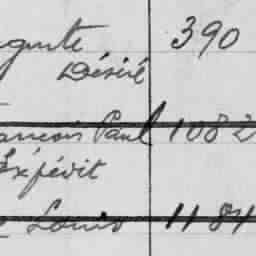 ugute 390
Désiré
ancois Paul 1082
Expédit
Louis 1184